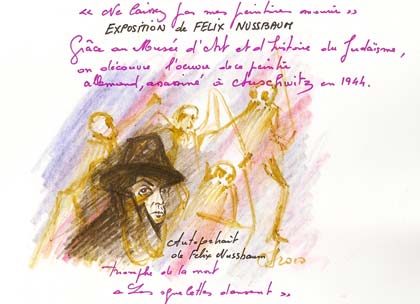 « Ne laissez pas mes peintures mourir »
EXPOSITION de FELIX NUSSBAUM
Grâce au Musée d'Art et d'histoire du Judaïsme,
on découvre l'oeuvre de ce peintre
allemand, assassiné à Auschwitz en 1944.
Autoportrait
de Félix Nussbaum
2010
triomphe de la mort
« Les squelettes dansent ».